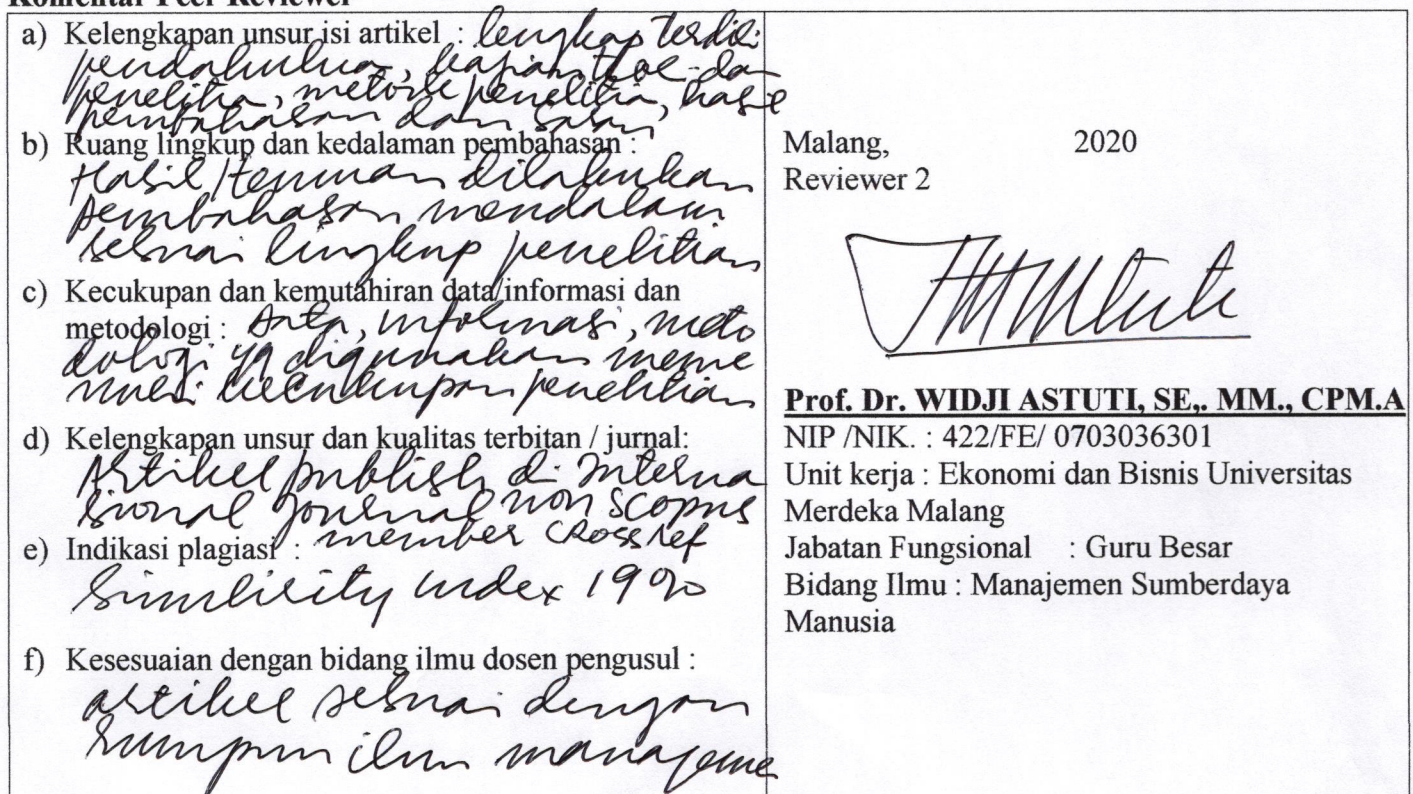 Komentar Peer Reviewer
a) Kelengkapan unsur isi artikel : lengkap terdiri
pendahulua, kajian dan
penelitia, metode penelitia, hasil
pembahasan dan saran
b) Ruang lingkup dan kedalaman pembahasan :
Hasil/temuan dilakukan
pembahasan mendalam
sesuai lingkup penelitian
c) Kecukupan dan kemutahiran data/informasi dan
metodologi : Data, informasi, meto
dologi yg digunakan meme
nuhi kecukupan penelitian
d) Kelengkapan unsur dan kualitas terbitan / jurnal:
Artikel publish di Interna
sional Journal non scopus
member crossref
e) Indikasi plagiasi :
Similirity index 19%
f) Kesesuaian dengan bidang ilmu dosen pengusul :
artikel sesuai dengan
rumpun ilmu manajeme
Malang, 2020
Reviewer 2
Prof. Dr. WIDJI ASTUTI, SE,. MM., CPM.A
NIP /NIK. : 422/FE/ 0703036301
Unit kerja : Ekonomi dan Bisnis Universitas
Merdeka Malang
Jabatan Fungsional : Guru Besar
Bidang Ilmu : Manajemen Sumberdaya
Manusia